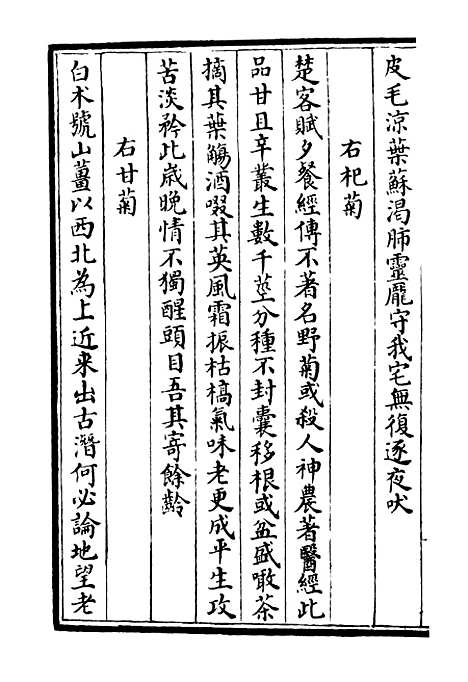 皮毛涼葉蘇渴肺靈厖守我宅無復逐夜吠
右杞菊
楚客賦夕餐經傳不著名野菊或殺人神農著醫經此
品甘且辛叢生數千莖分種不封囊移根或盆盛噉茶
摘其葉觴酒啜其英風霜振枯槁氣味老更成平生攻
苦淡矜此歲晚情不獨醒頭目吾其寄餘齡
右甘菊
白术號山薑以西北為上近来出古潛何必論地望老